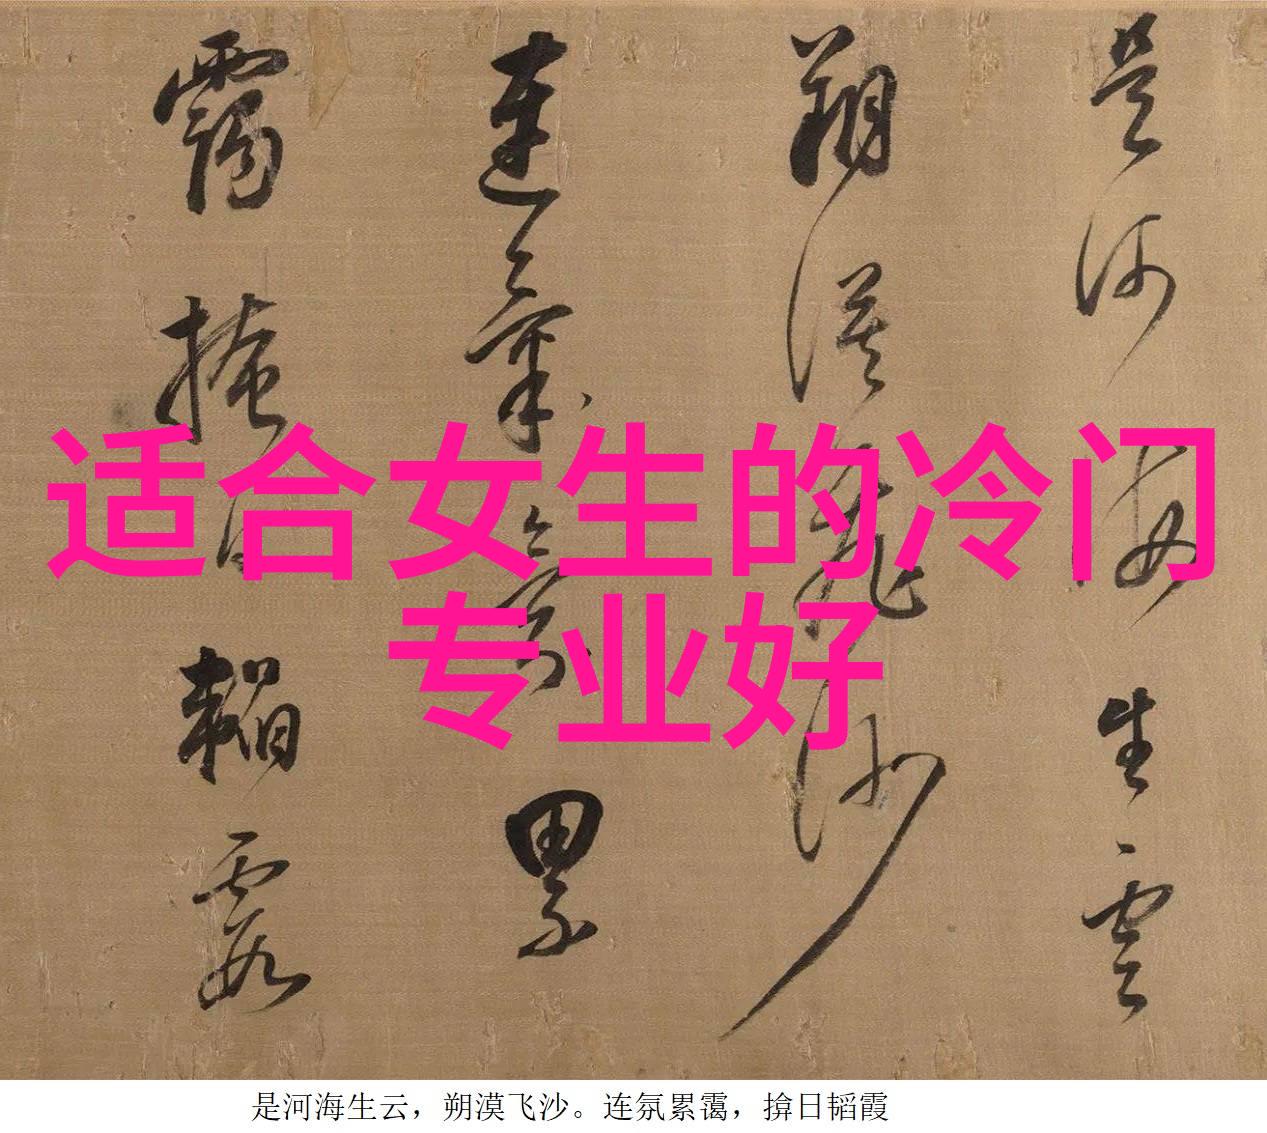 是河海生雲
朔漠飛沙
連氣氛累
靄掩日韜霞
适合女生的冷门
专业好
是河海生云，朔漠飞沙。连氛累霭，揜日韬霞